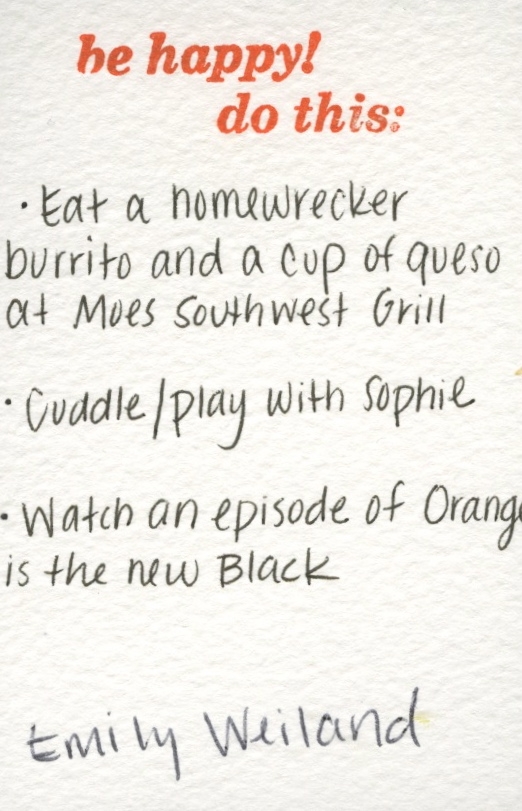 be happy!
do this:
· Eat a homewrecker
burrito and a cup of queso
at Moes Southwest Grill
· Cuddle/play with Sophie
· Watch an episode of Orange
is the new Black
Emily Weiland